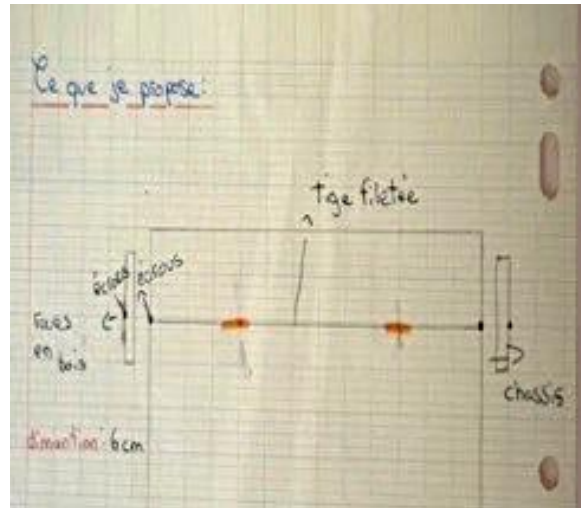 Ce que je propose:
tige filetée
écrous écrous
roues
en bois
chassis
dimention 6cm